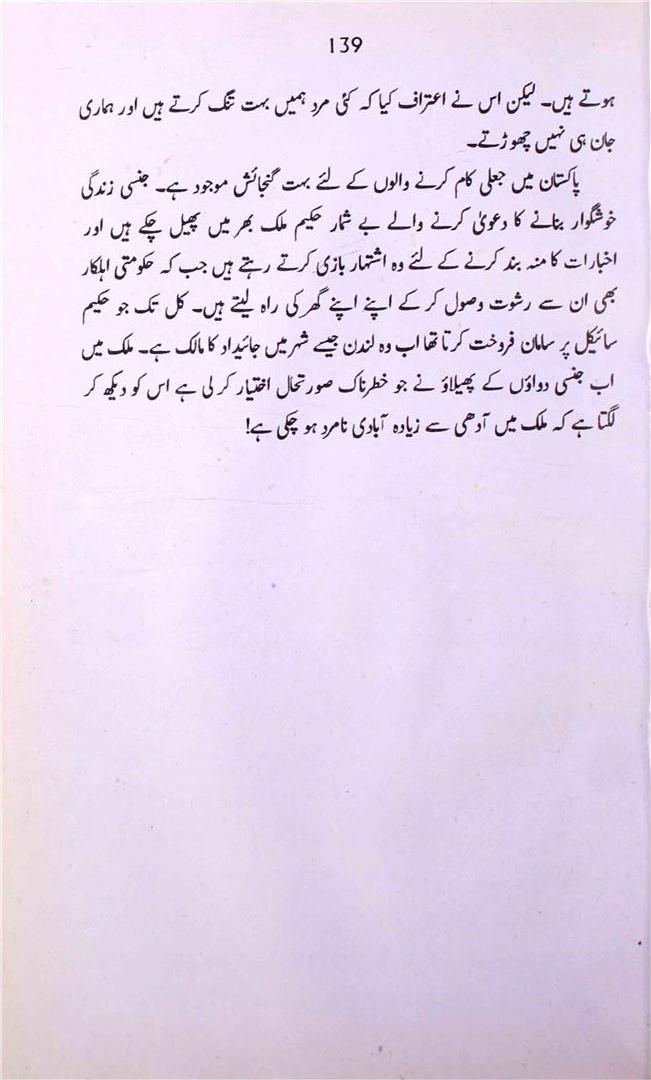 139
ہوتے ہیں۔ لیکن اس نے اعتراف کیا کہ کئی مرد ہمیں بہت تنگ کرتے ہیں اور ہماری
جان ہی نہیں چھوڑتے۔
پاکستان میں جعلی کام کرنے والوں کے لئے بہت گنجائش موجود ہے۔ جنسی زندگی
خوشگوار بنانے کا دعویٰ کرنے والے بے شمار حکیم ملک بھر میں پھیل چکے ہیں اور
اخبارات کا منہ بند کرنے کے لئے وہ اشتہار بازی کرتے رہتے ہیں جب کہ حکومتی اہلکار
بھی ان سے رشوت وصول کر کے اپنے اپنے گھر کی راہ لیتے ہیں۔ کل تک جو حکیم
سائیکل پر سامان فروخت کرتا تھا اب وہ لندن جیسے شہر میں جائیداد کا مالک ہے۔ ملک میں
اب جنسی دواؤں کے پھیلاؤ نے جو خطرناک صورتحال اختیار کر لی ہے اس کو دیکھ کر
لگتا ہے کہ ملک میں آدھی سے زیادہ آبادی نامرد ہو چکی ہے!